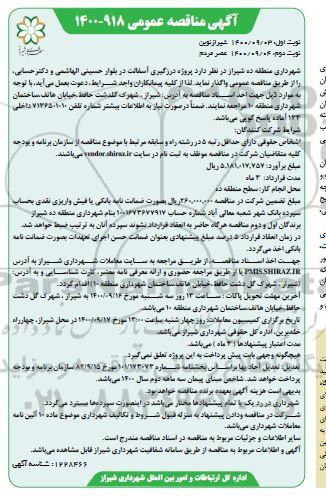 آگهی مناقصه عمومی ۹۱۸-۱۴۰۰
نوبت اول: ۱۴۰۰/۰۹/۰۳ شیرازنوین
نوبت دوم: ۱۴۰۰/۰۹/۰۴ عصر مردم
شهرداری منطقه ده شیراز در نظر دارد پروژه درزگیری آسفالت در بلوار حسینی الهاشمی و دکترحسابی،
را از طریق مناقصه عمومی واگذار نماید. لذا از کلیه پیمانکاران واجد شرایط، دعوت بعمل می‌آید، با توجه
به موارد ذیل جهت اخذ اسناد مناقصه به آدرس: شیراز، شهرک گلدشت حافظ، خیابان هاتف، ساختمان
شهرداری منطقه ۱۰ مراجعه نمایند. ضمناً در صورت نیاز به اطلاعات بیشتر شماره تلفن ۱۰-۷۱۳۶۵۰۱۰ داخلی
۱۳۳ آماده پاسخ گویی می‌باشد.
شرایط شرکت کنندگان:
اشخاص حقوقی دارای حداقل رتبه ۵ در رشته راه و سابقه مرتبط با موضوع مناقصه از سازمان برنامه و بودجه
کلیه متقاضیان شرکت در مناقصه موظف به ثبت نام در سایت vendor.shiraz.ir می‌باشند.
مبلغ برآورد: ۵,۱۸۱,۰۱۷,۷۵۷ ریال
مدت قرارداد: ۳ ماه
محل انجام کار: سطح منطقه ده
مبلغ تضمین شرکت در مناقصه ۲۶۰,۰۰۰,۰۰۰ ریال بصورت ضمانت نامه بانکی یا فیش واریزی نقدی بحساب
سپرده بانک شهر شعبه معالی آباد شماره حساب ۱۰۰۱۶۷۳۶۷۷۹۱۷ بنام شهرداری منطقه ده شیراز
برندگان اول و دوم مناقصه هرگاه حاضر به انعقاد قرارداد نشوند سپرده آنان به ترتیب ضبط خواهد شد.
در زمان انعقاد قرارداد ۵ درصد مبلغ پیشنهادی بعنوان ضمانت حسن اجرای تعهدات بصورت ضمانت نامه
بانکی اخذ می‌گردد.
جهت اخذ اسناد مناقصه، از طریق مراجعه به سایت معاملات شهرداری شیراز به آدرس
PMIS.SHIRAZ.IR یا از طریق مراجعه حضوری و ارائه معرفی نامه معتبر، کارت شناسایی و به آدرس:
(شیراز، شهرک گل دشت حافظ، خیابان هاتف، ساختمان شهرداری منطقه ۱۰) اقدام گردد.
آخرین مهلت تحویل پاکات: ساعت ۱۳ روز سه شنبه مورخ ۱۴۰۰/۰۹/۱۶ به شیراز، شهرک گل دشت
حافظ، خیابان هاتف، ساختمان شهرداری منطقه ۱۰ می‌باشد.
تاریخ برگزاری کمیسیون معاملات: روز چهار شنبه ساعت ۱۳:۰۰ مورخ ۱۴۰۰/۰۹/۱۷ در محل شیراز، چهارراه
خلدبرین، اداره کل حقوقی شهرداری شیراز می‌باشد.
مدت اعتبار پیشنهادها (۳ ماه) می‌باشد.
هیچگونه وجهی بابت پیش پرداخت به این پروژه تعلق نمی گیرد.
تعدیل: تعدیل آحاد بها براساس بخشنامه شماره ۱۰۱/۱۷۳۰۷۳ مورخ ۸۲/۹/۱۵ سازمان برنامه و بودجه
پرداخت خواهد شد. شاخص مبنای پیمان سه ماهه دوم سال ۱۴۰۰ می‌باشد.
بدیهی است هزینه آگهی بعهده برنده مناقصه خواهد بود.
شهرداری در رد یک یا تمام پیشنهادها مختار می‌باشد در اینصورت سپرده‌ها مسترد می‌گردد.
شرکت در مناقصه ودادن پیشنهاد به منزله قبول شروط و تکالیف شهرداری موضوع ماده ۱۰ آئین نامه
معاملات شهرداری می‌باشد.
سایر اطلاعات و جزئیات مربوط به مناقصه در اسناد مناقصه مندرج است.
آگهی و اطلاعات مربوط به مناقصه از طریق سامانه شفافیت شهرداری شیراز قابل مشاهده می‌باشد.
شناسه آگهی: ۱۲۲۸۴۶۶
اداره کل ارتباطات و امور بین الملل شهرداری شیراز